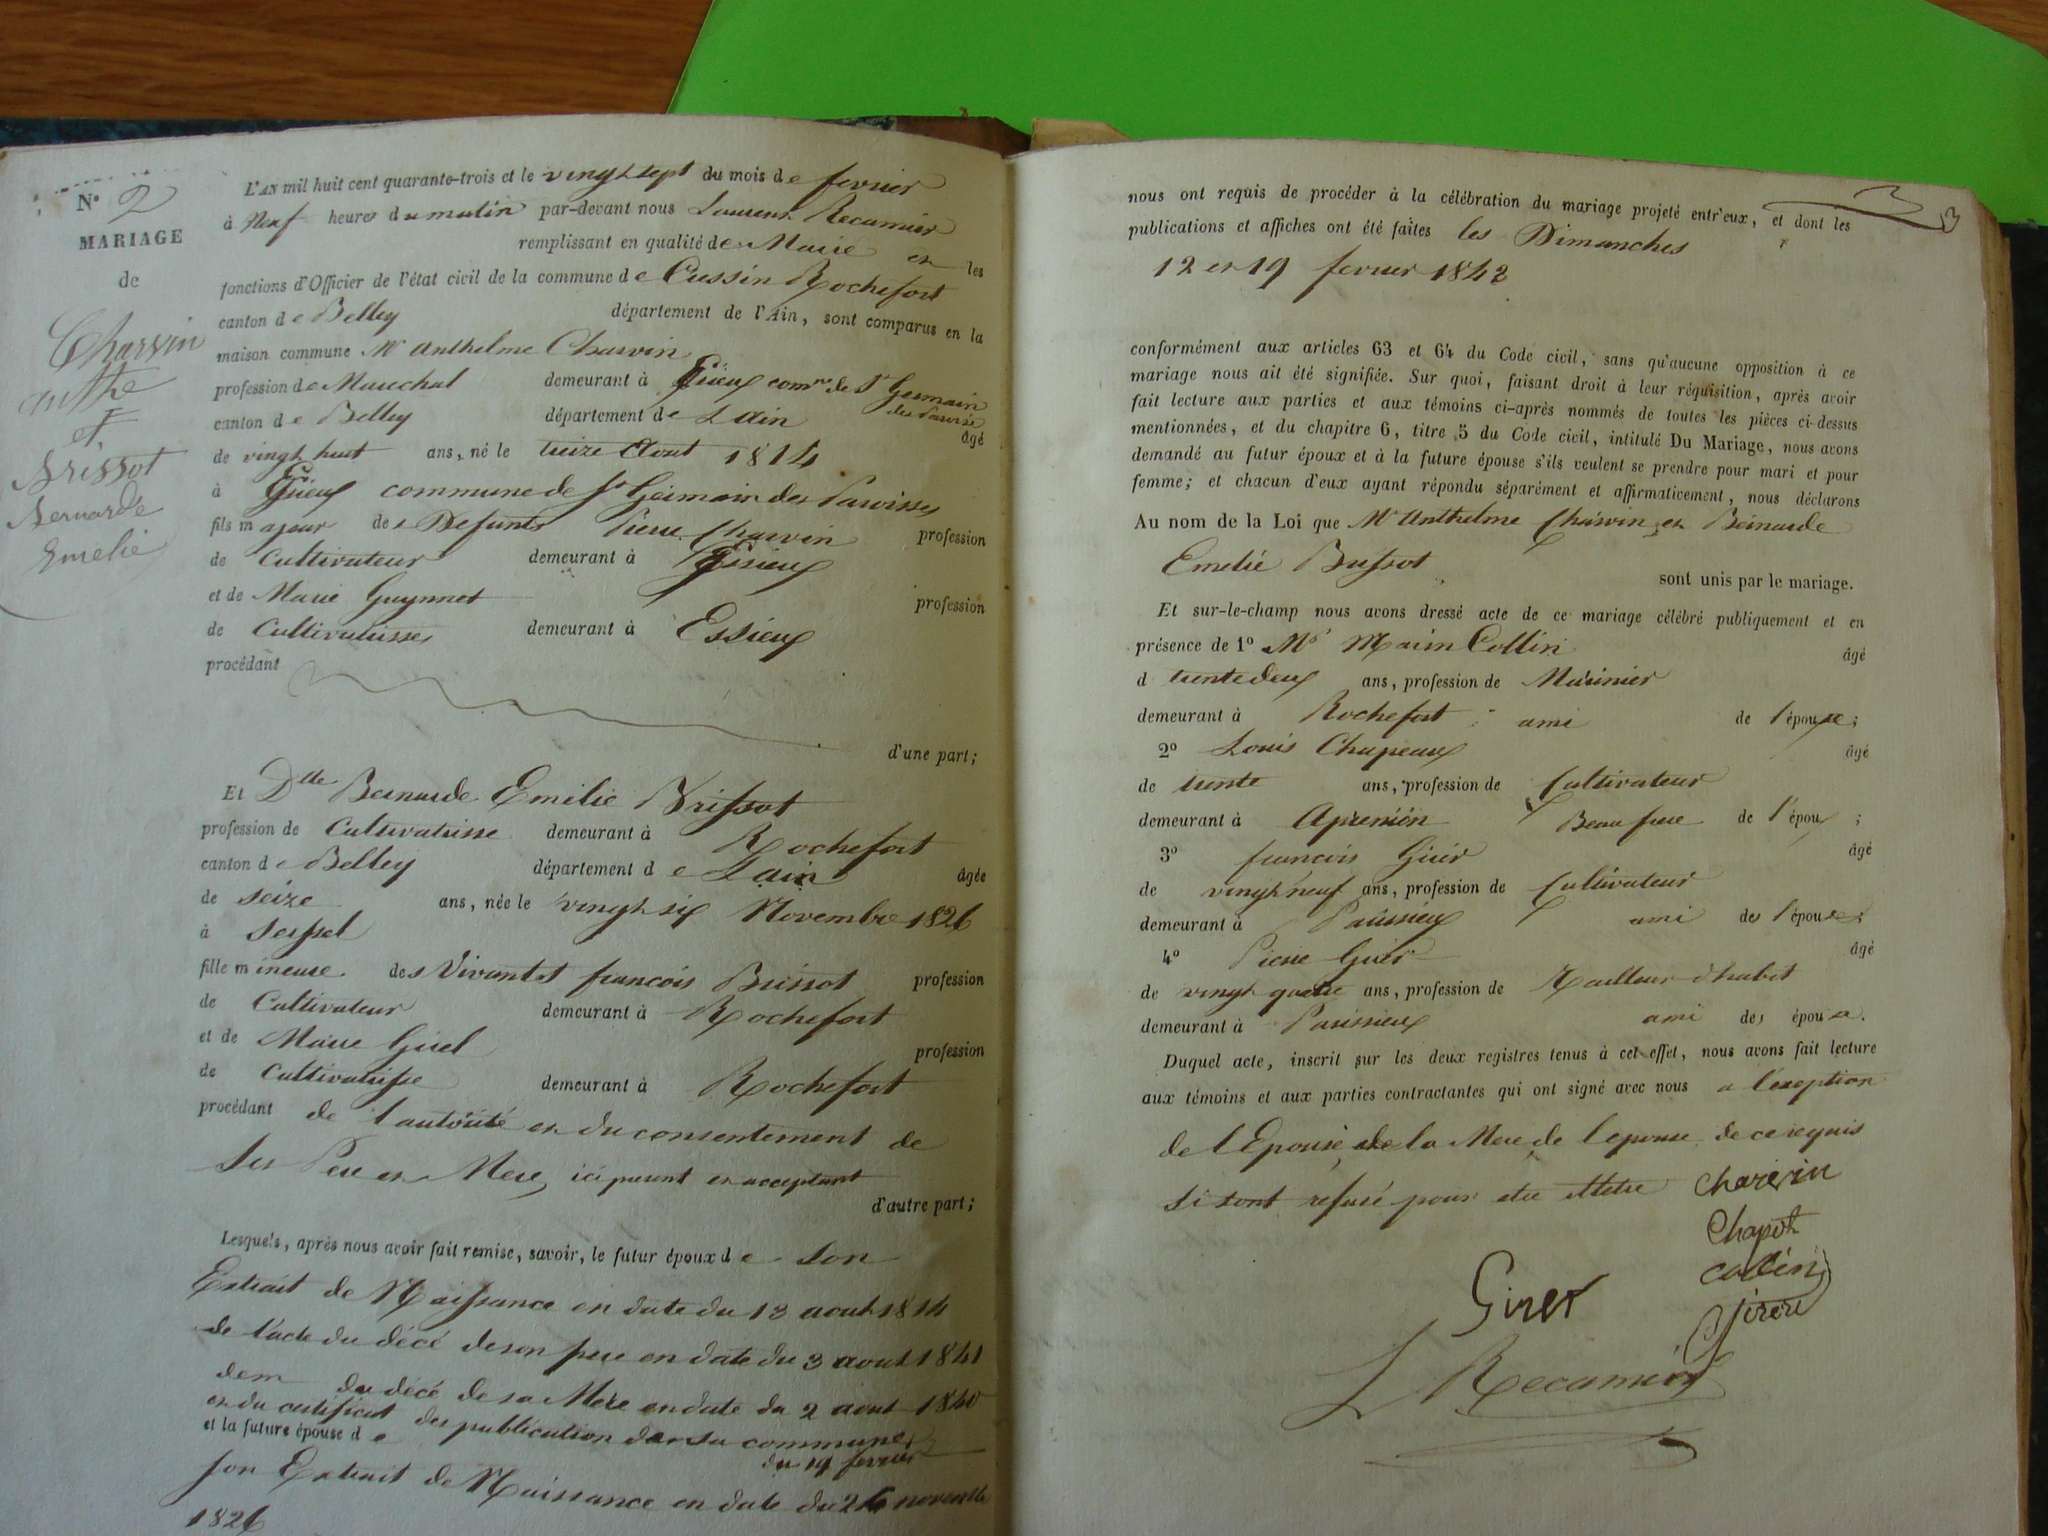 N° 2
MARIAGE
de
Charvin
anthe
et
Brissot
Bernarde
Emelie
L'AN mil huit cent quarante-trois et le vingt sept du mois de fevrier
à Neuf heures du matin par-devant nous Laurent Recamier
remplissant en qualité de Maire en les
fonctions d'Officier de l'état civil de la commune de Cressin Rochefort
canton de Belley département de l'Ain, sont comparus en la
maison commune Mr Anthelme Charvin
profession de Marechal demeurant à Essieux comne de St Germain
les Paroisse
canton de Belley département de Lain âgé
de vingt huit ans, né le treize Aout 1814
à Essieux commune de St Germain les Paroisses
fils majeur des Defunts Pierre Charvin profession
de Cultivateur demeurant à Essieux
et de Marie Guynnet profession
de Cultivatrisse demeurant à Essieux
procédant
d'une part;
Et Dlle Bernarde Emilie Brissot
profession de Cultivatrisse demeurant à Rochefort
canton de Belley département de Lain âgée
de seize ans, née le vingt six Novembre 1826
à Seyssel
fille mineure des Vivantst francois Brissot profession
de Cultivateur demeurant à Rochefort
et de Marie Girel profession
de Cultivatrisse demeurant à Rochefort
procédant de l'autorité et du consentement de
Ses Pere et Mere, ici present et acceptant
d'autre part;
Lesquels, après nous avoir fait remise, savoir, le futur époux de Son
Extrait de Naissance en date du 13 aout 1814
de l'acte du décé de son pere en date du 3 aout 1841
dem du décé de sa Mere en date du 2 aout 1840
et du certificat des publication dans sa commune
du 19 fevrier
et la future épouse de
son Extrait de Naissance en date du 26 novembre
1826
3
3
nous ont requis de procéder à la célébration du mariage projeté entr'eux, et dont les
publications et affiches ont été faites les Dimanches
12 et 19 fevrier 1842
conformément aux articles 63 et 64 du Code civil, sans qu'aucune opposition à ce
mariage nous ait été signifiée. Sur quoi, faisant droit à leur réquisition, après avoir
fait lecture aux parties et aux témoins ci-après nommés de toutes les pièces ci-dessus
mentionnées, et du chapitre 6, titre 5 du Code civil, intitulé Du Mariage, nous avons
demandé au futur époux et à la future épouse s'ils veulent se prendre pour mari et pour
femme; et chacun d'eux ayant répondu séparément et affirmaticement, nous déclarons
Au nom de la Loi que Mr Anthelme Charvin et Bernarde
Emelie Brissot
sont unis par le mariage.
Et sur-le-champ nous avons dressé acte de ce mariage célébré publiquement et en
présence de 1° Mr Marin Collin âgé
d trente deux ans, profession de Meunier
demeurant à Rochefort ami de l'épouse;
2° Louis Chapeaux âgé
de trente ans, profession de Cultivateur
demeurant à Apremien Beau frere de l'époux;
3° francois Girer âgé
de vingt neuf ans, profession de Cultivateur
demeurant à Parissieux ami de l'épouse;
4° Pierre Girer âgé
de vingt quatre ans, profession de Tailleur d'habit
demeurant à Parissieux ami de, épouse.
Duquel acte, inscrit sur les deux registres tenus à cet effet, nous avons fait lecture
aux témoins et aux parties contractantes qui ont signé avec nous a l'exeption
de l'Epouse, de la Mere de l'epouse, de ce requis
si sont refusé pour etre illetre
Charvin
Chapot
Collin
Girer
L Recamier